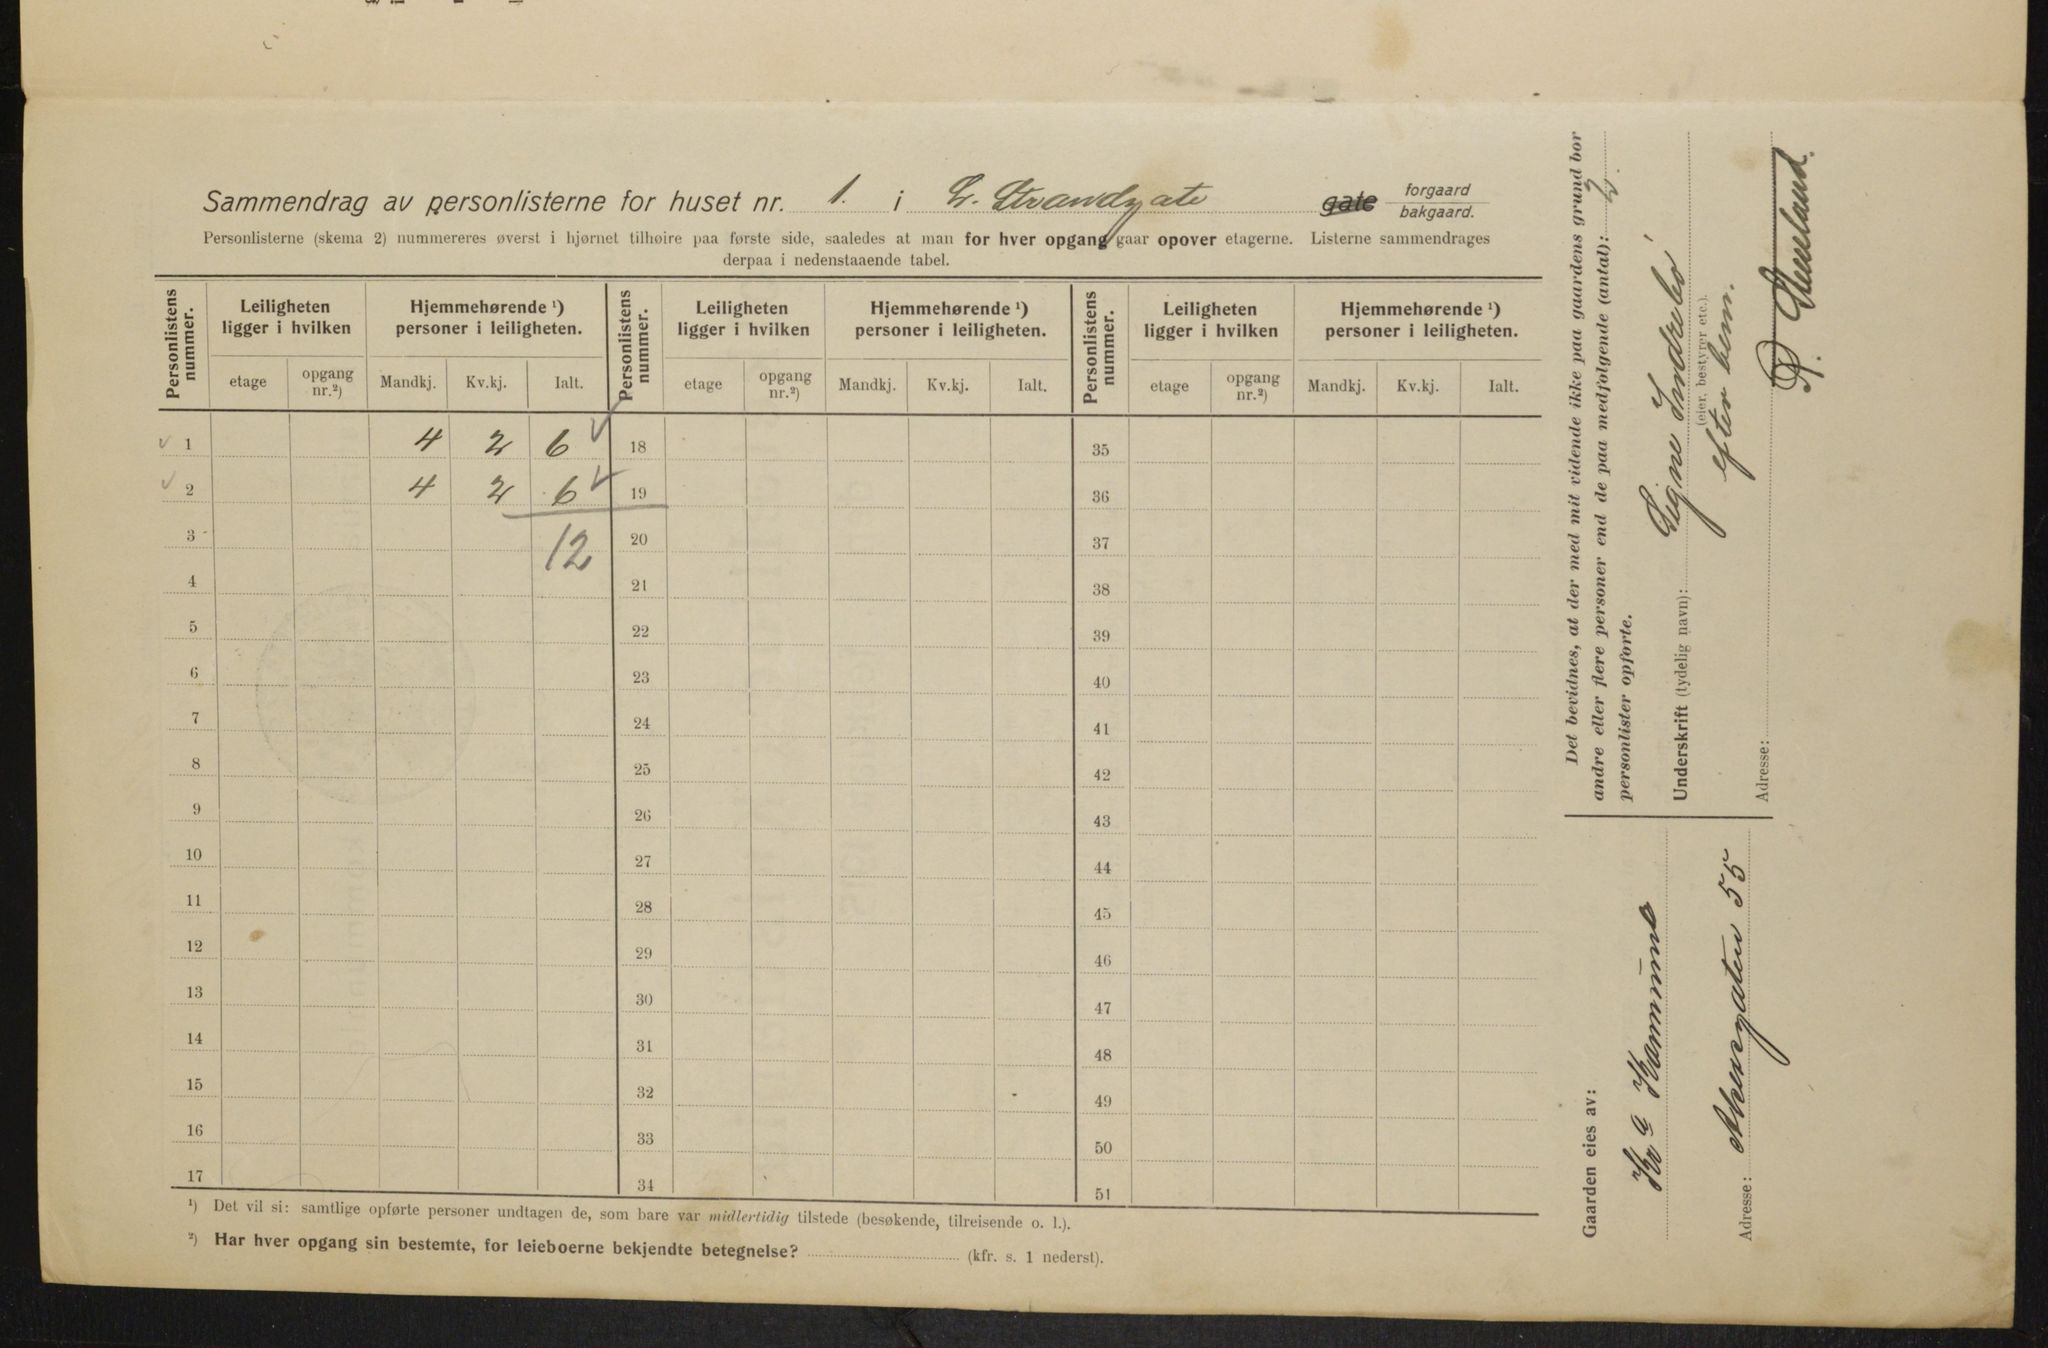 Sammendrag av personlisterne for huset nr. 1. i L. Strandgate gate forgaard bakgaard.
Personlisterne (skema 2) nummereres øverst i hjørnet tilhøire paa første side, saaledes at man for hver opgang gaar opover etagerne. Listerne sammendrages
derpaa i nedenstaaende tabel.
Personlistens nummer. Leiligheten ligger i hvilken Hjemmehørende ¹) personer i leiligheten. Personlistens nummer. Leiligheten ligger i hvilken Hjemmehørende ¹) personer i leiligheten. Personlistens nummer. Leiligheten ligger i hvilken Hjemmehørende ¹) personer i leiligheten.
etage opgang nr.²) Mandkj. Kv.kj. Ialt. etage opgang nr.²) Mandkj. Kv.kj. Ialt. etage opgang nr.²) Mandkj. Kv.kj. Ialt.
1 4 2 6 18 35
2 4 2 6 19 36
3 12 20 37
4 21 38
5 22 39
6 23 40
7 24 41
8 25 42
9 26 43
10 27 44
11 28 45
12 29 46
13 30 47
14 31 48
15 32 49
16 33 50
17 34 51
¹) Det vil si: samtlige opførte personer undtagen de, som bare var midlertidig tilstede (besøkende, tilreisende o. l.).
²) Har hver opgang sin bestemte, for leieboerne bekjendte betegnelse? (kfr. s. 1 nederst).
Det bevidnes, at der med mit vidende ikke paa gaardens grund bor
andre eller flere personer end de paa medfølgende (antal): 2.
personlister opførte.
Underskrift (tydelig navn): Signe Indrebö
(eier, bestyrer etc.).
efter bem.
Adresse:
Gaarden eies av:
Kra Kommune
Adresse: Akersgaten 55